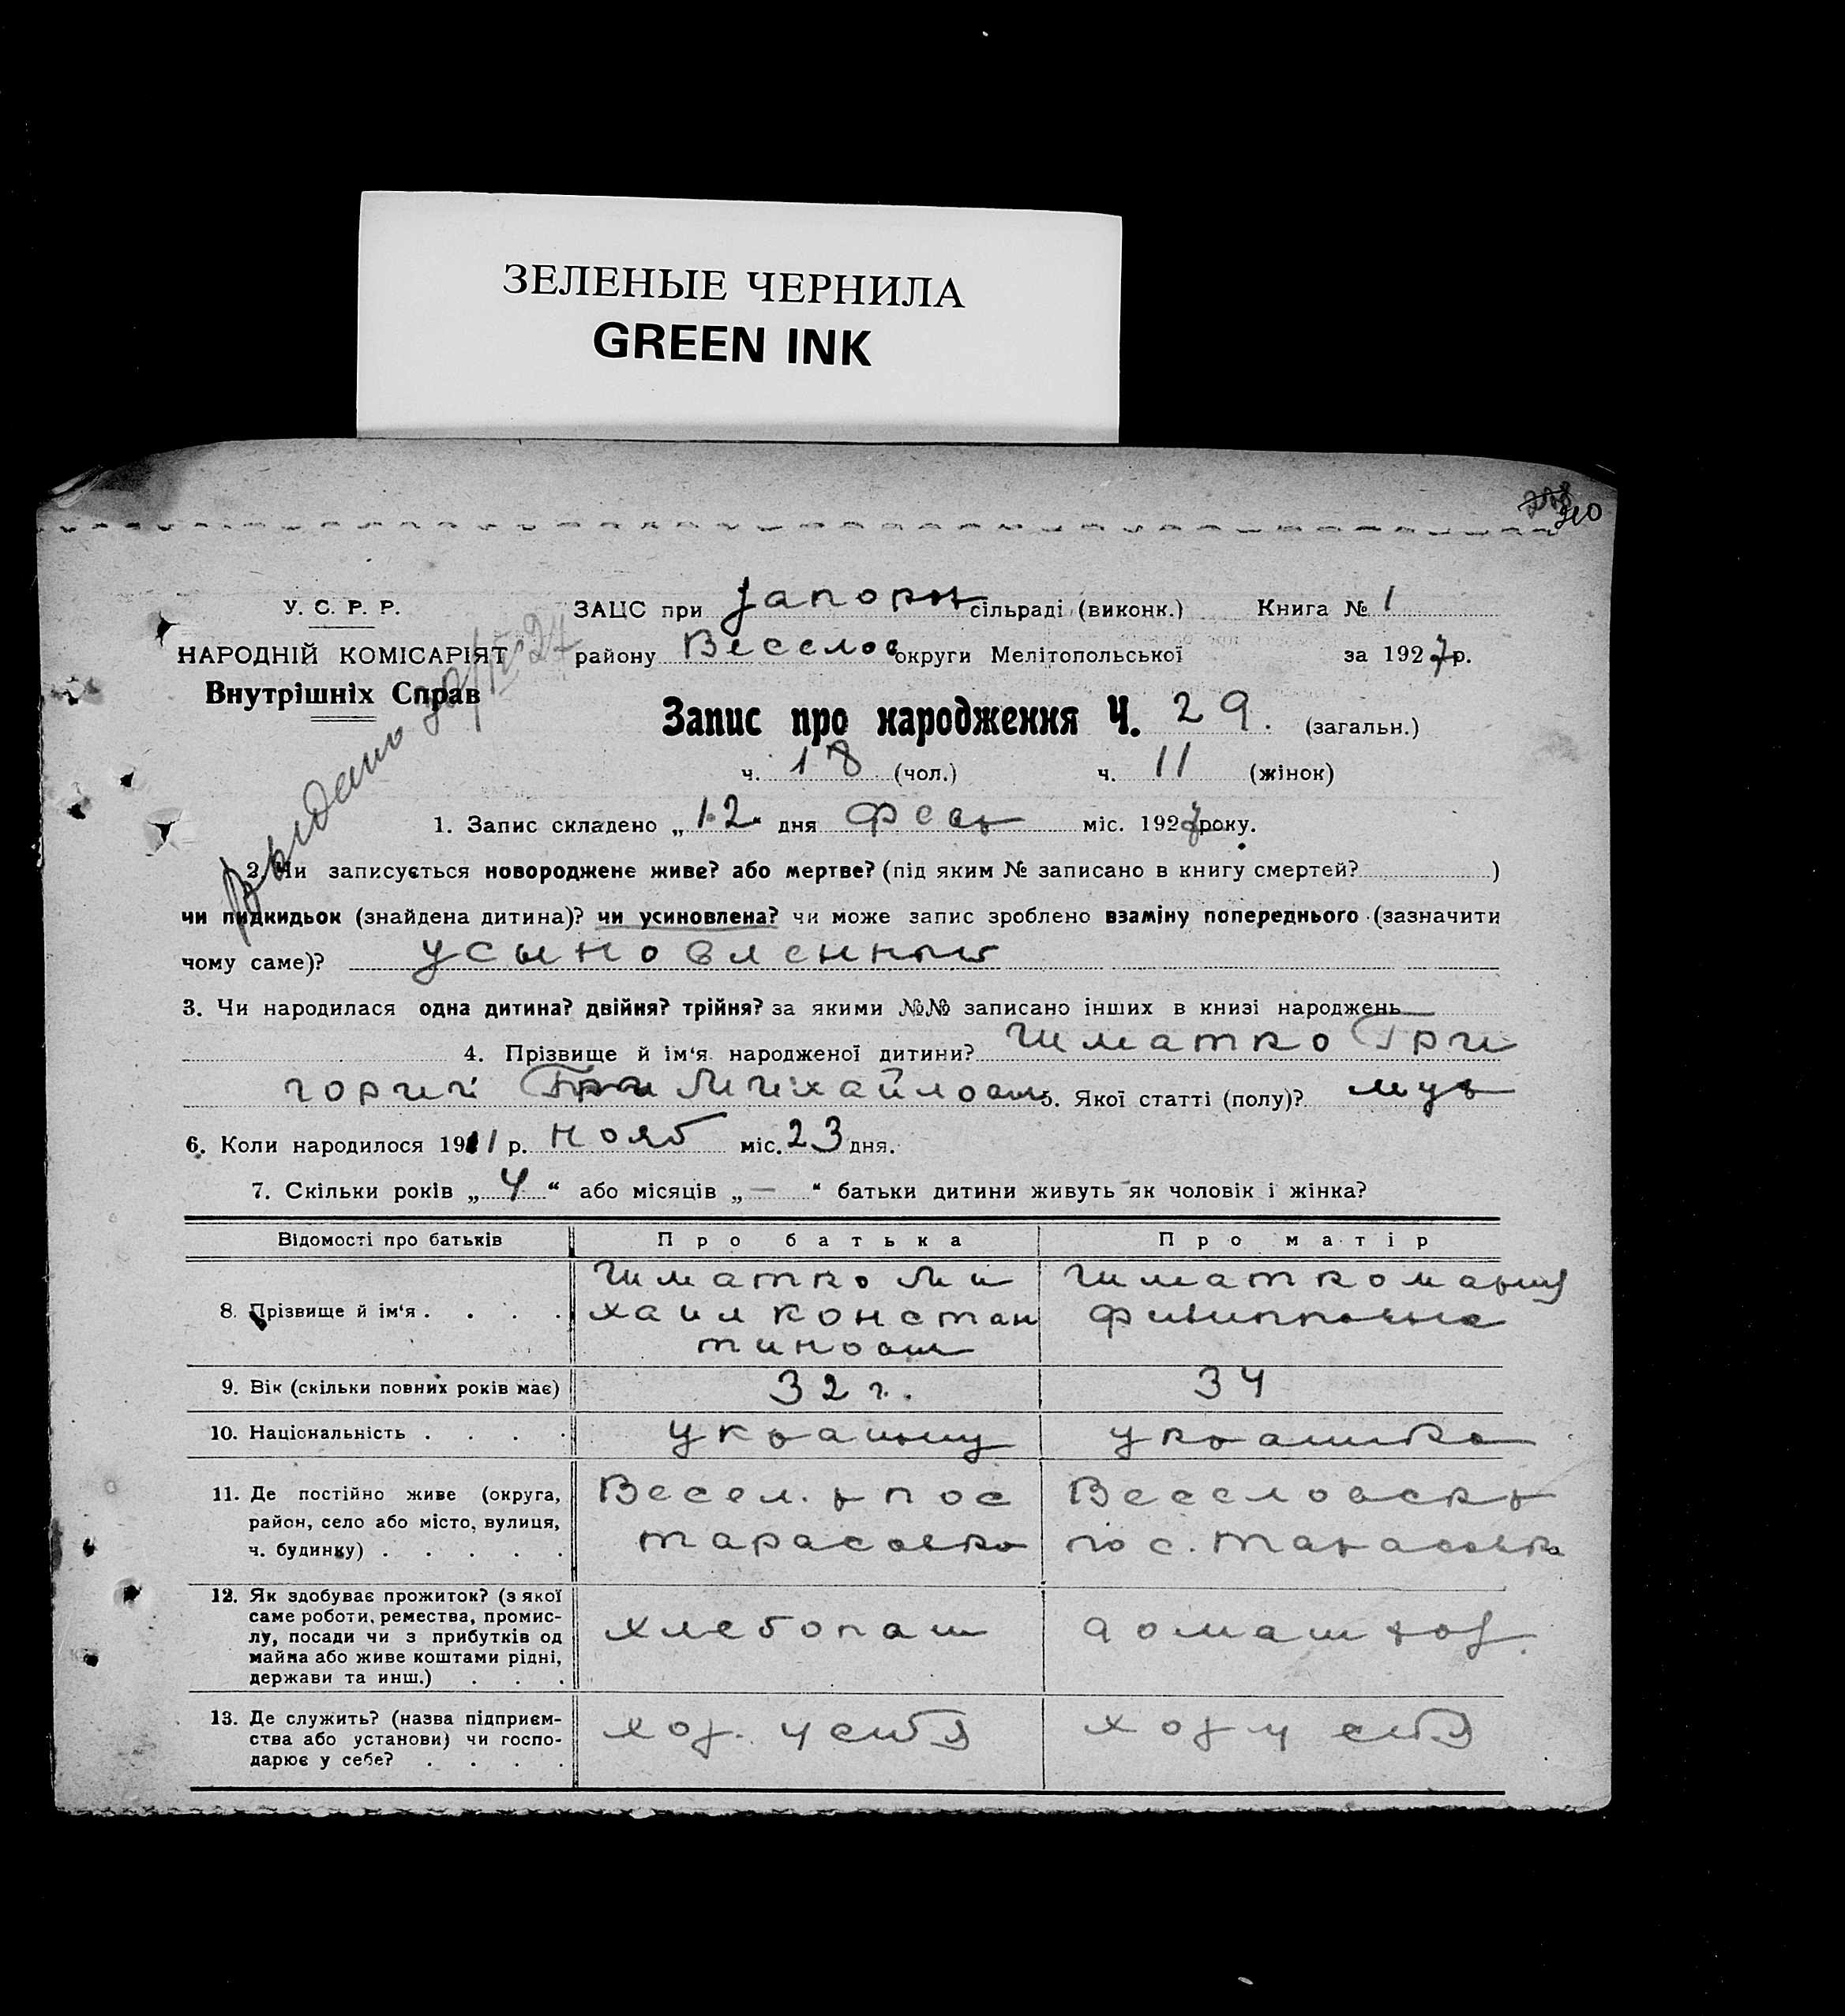 ЗЕЛЕНЫЕ ЧЕРНИЛА
GREEN INK
210
У. С. Р. Р.
НАРОДНІЙ КОМІСАРІЯТ
Внутрішніх Справ
ЗАЦС при Запорж сільраді (виконк.) Книга № 1
району Весело округи Мелітопольської за 1927 р.
Запис про народження Ч. 29. (загальн.)
ч. 18 (чол.) ч. 11 (жінок)
Выдано
1. Запис складено „12“ дня февр міс. 1927 року.
2. Чи записується новороджене живе? або мертве? (під яким № записано в книгу смертей? )
чи підкидьок (знайдена дитина)? чи усиновлена? чи може запис зроблено взаміну попереднього (зазначити
чому саме)? усыновленный
3. Чи народилася одна дитина? двійня? трійня? за якими №№ записано інших в книзі народжень —
4. Прізвище й ім‘я народженої дитини? Чиматко Гри
горий Михайлович 5. Якої статті (полу)? муж
6. Коли народилося 1911 р. нояб міс. 23 дня.
7. Скільки років „4“ або місяців „—“ батьки дитини живуть як чоловік і жінка?
Відомості про батьків Про батька Про матір
8. Прізвище й ім‘я . . . . Чиматко Ми Чиматко Мария
хаил Констан Филипповна
тинович
9. Вік (скільки повних років має) 32 г. 34
10. Національність . . . . украинец украинка
11. Де постійно живе (округа, Весел. р пос Веселовск р
район, село або місто, вулиця, Тарасовка пос. Тарасовка
ч. будинку) . . . . .
12. Як здобуває прожиток? (з якої
саме роботи, ремества, промис-
лу, посади чи з прибутків од хлебопаш домаш хоз.
майна або живе коштами рідні,
держави та инш.) . . .
13. Де служить? (назва підприєм- хоз. у себя хоз у себя
ства або установи) чи госпо-
дарює у себе? . . . .